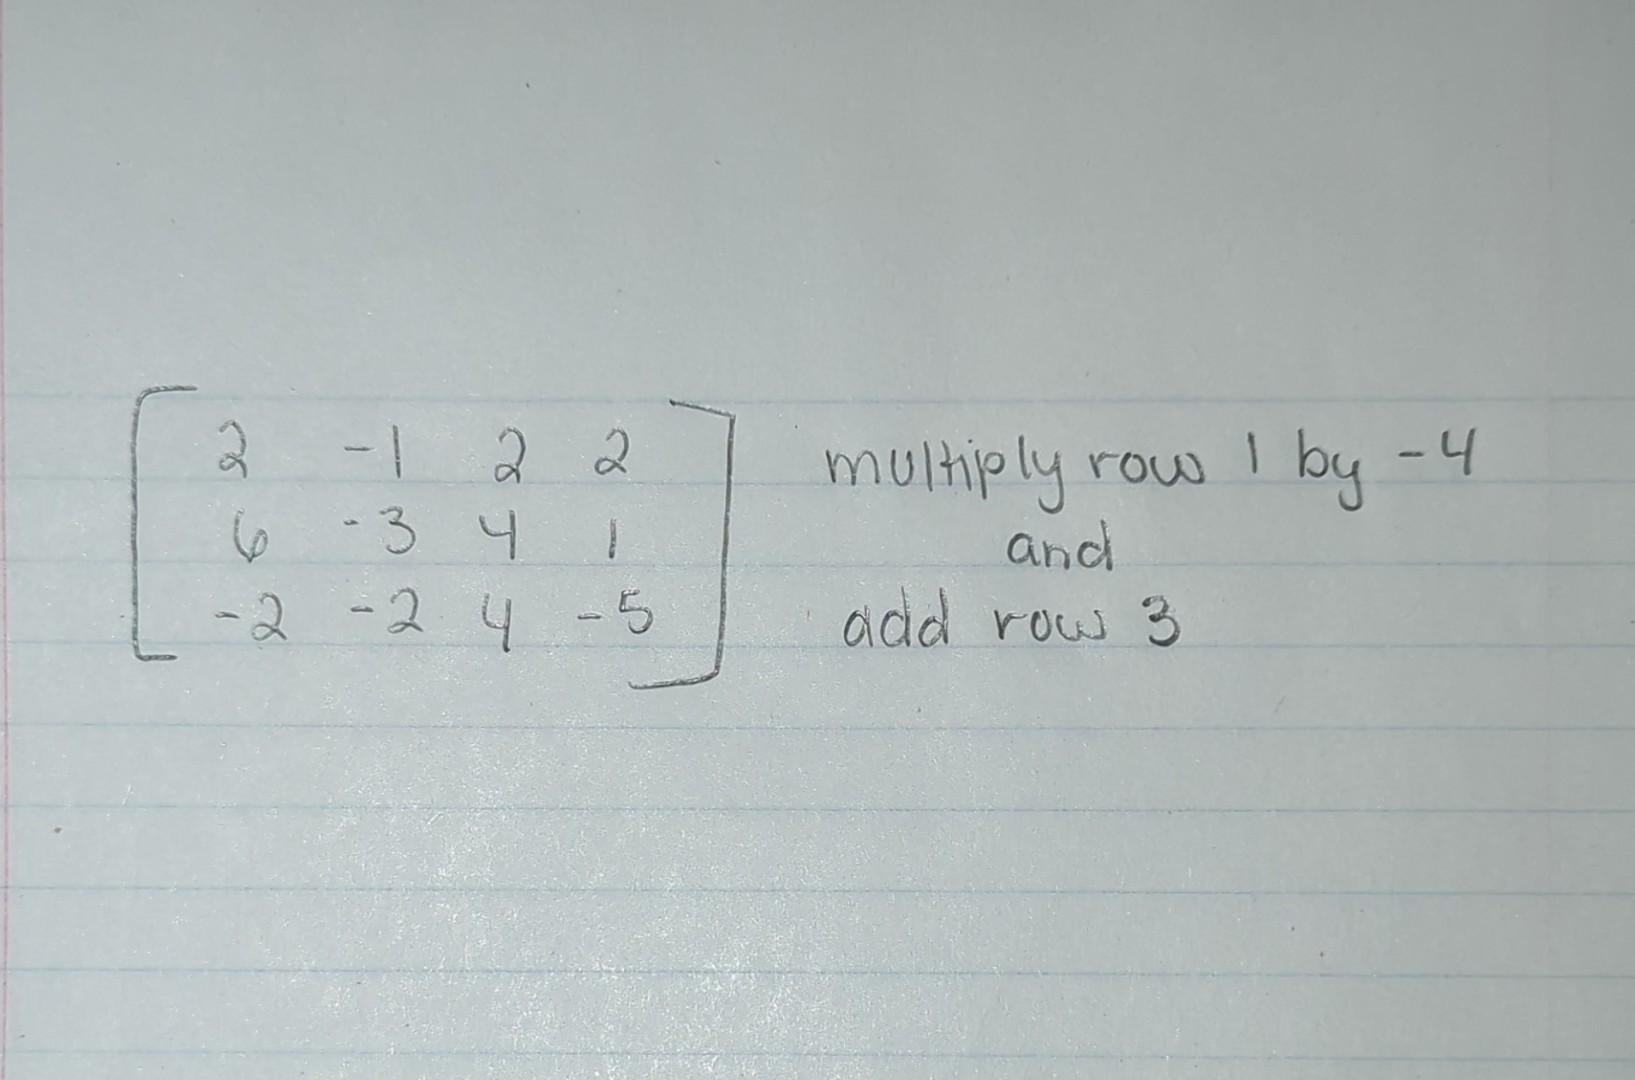 2 -1 2 2 multiply row 1 by -4
6 -3 4 1 and
-2 -2 4 -5 add row 3